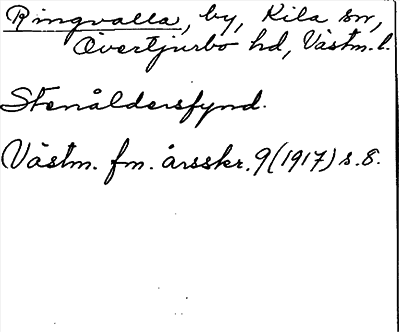 Ringvalla, by, Kila sn,
Övertjurbo hd, Västm. l.
Stenåldersfynd.
Västm. fm. årsskr. 9 (1917) s. 8.